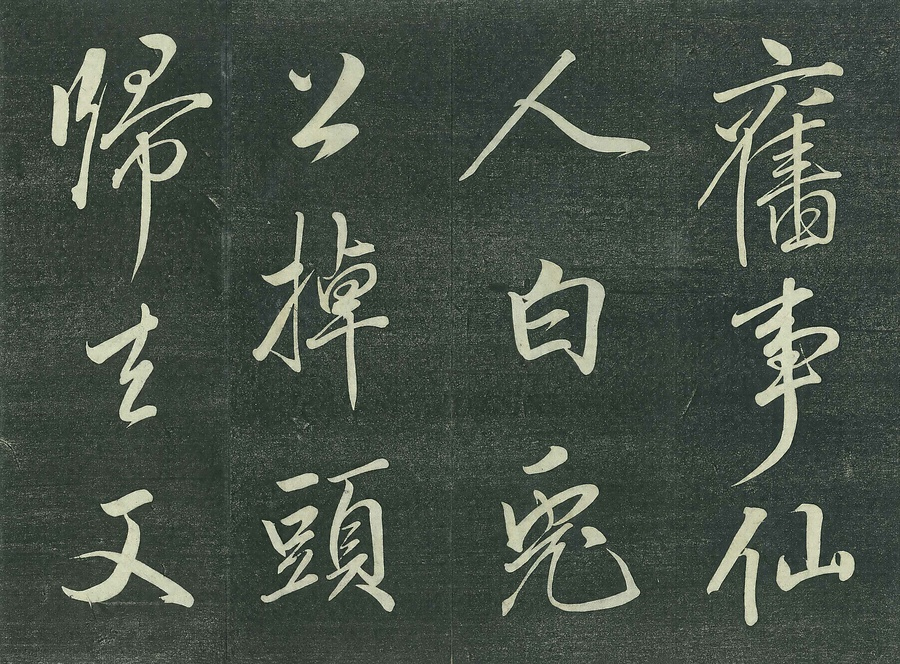 舊事仙
人白兎
公掉頭
歸去又